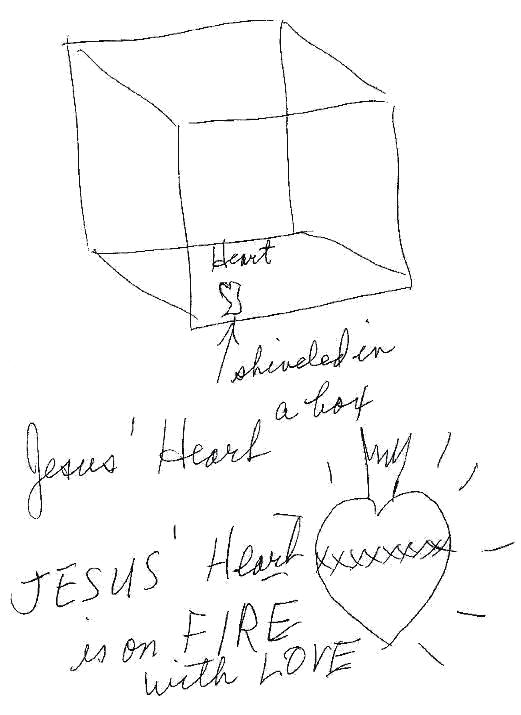 Heart
shiveled in
a box
Jesus' Heart
JESUS' Heart
is on FIRE
with LOVE